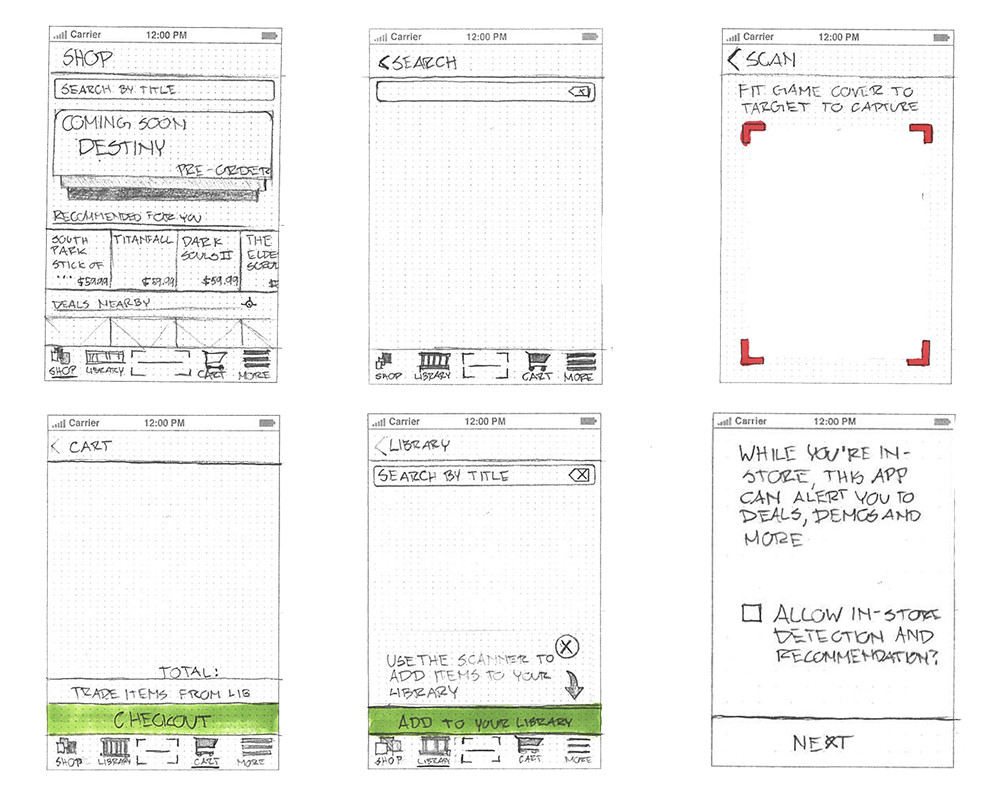 Carrier 12:00 PM
SHOP
SEARCH BY TITLE
COMING SOON
DESTINY
PRE-ORDER
RECOMMENDED FOR YOU
SOUTH
PARK
STICK OF
... $59.99
TITANFALL
$59.99
DARK
SOULS II
$59.99
THE
ELDE
SCROL
$
DEALS NEARBY
SHOP LIBRARY CART MORE
Carrier 12:00 PM
SEARCH
SHOP LIBRARY CART MORE
Carrier 12:00 PM
SCAN
FIT GAME COVER TO
TARGET TO CAPTURE
Carrier 12:00 PM
CART
TOTAL:
TRADE ITEMS FROM LIB
CHECKOUT
SHOP LIBRARY CART MORE
Carrier 12:00 PM
LIBRARY
SEARCH BY TITLE
USE THE SCANNER TO
ADD ITEMS TO YOUR
LIBRARY
ADD TO YOUR LIBRARY
SHOP LIBRARY CART MORE
Carrier 12:00 PM
WHILE YOU'RE IN-
STORE, THIS APP
CAN ALERT YOU TO
DEALS, DEMOS AND
MORE
ALLOW IN-STORE
DETECTION AND
RECOMMENDATION?
NEXT